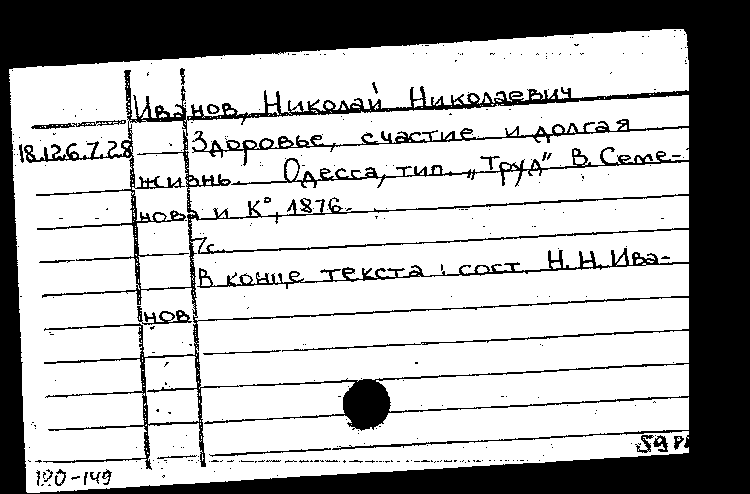 Иванов, Николай Николаевич
18.126.7.28 Здоровье, счастие и долгая
жизнь. Одесса, тип. „Труд" В. Семе-
нова и К°, 1876.
7с.
В конце текста: сост. Н.Н. Ива-
нов
59
120-149